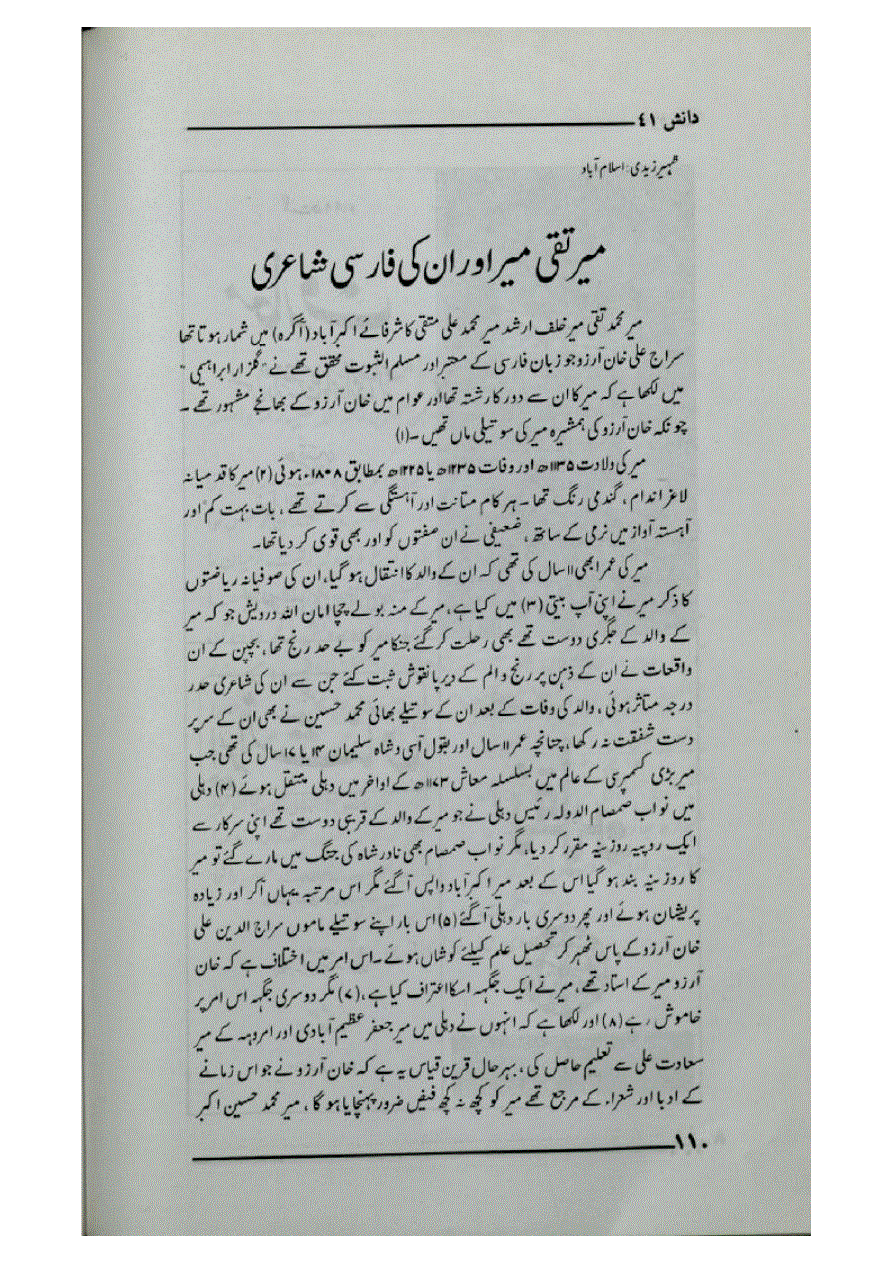 دانش ۴۱
ظہیر زیدی: اسلام آباد
میر تقی میر اور ان کی فارسی شاعری
میر محمد تقی میر خلف ارشد میر محمد علی متقی کا شرفائے اکبر آباد (آگرہ) میں شمار ہوتا تھا
سراج علی خان آرزو جو زبان فارسی کے معتبر اور مسلم الثبوت محقق تھے نے "گلزار ابراہیمی"
میں لکھا ہے کہ میر کا ان سے دور کا رشتہ تھا اور عوام میں خان آرزو کے بھانجے مشہور تھے ۔
چونکہ خان آرزو کی ہمشیرہ میر کی سوتیلی ماں تھیں ۔(۱)
میر کی ولادت ۱۱۳۵ھ اور وفات ۱۲۳۵ھ یا ۱۲۲۵ھ بمطابق ۱۸۰۸ء ہوئی (۲) میر کا قد میانہ
لاغر اندام ، گندمی رنگ تھا ۔ ہر کام متانت اور آہستگی سے کرتے تھے ، بات بہت کم اور
آہستہ آواز میں نرمی کے ساتھ ، ضعیفی نے ان صفتوں کو اور بھی قوی کر دیا تھا۔
میر کی عمر ابھی ۱۱ سال کی تھی کہ ان کے والد کا انتقال ہو گیا، ان کی صوفیانہ ریاضتوں
کا ذکر میر نے اپنی آپ بیتی (۳) میں کیا ہے ، میر کے منہ بولے چچا امان اللہ درویش جو کہ میر
کے والد کے جگری دوست تھے بھی رحلت کر گئے جنکا میر کو بے حد رنج تھا ، بچپن کے ان
واقعات نے ان کے ذہن پر رنج و الم کے دیرپا نقوش ثبت کئے جن سے ان کی شاعری حد در
درجہ متاثر ہوئی ، والد کی وفات کے بعد ان کے سوتیلے بھائی محمد حسین نے بھی ان کے سر پر
دست شفقت نہ رکھا ، چنانچہ عمر ۱۱ سال اور بقول آسی و شاہ سلیمان ۱۴ یا ۱۷ سال کی تھی جب
میر بڑی کسمپرسی کے عالم میں بسلسلہ معاش ۱۱۷۳ھ کے اواخر میں دہلی منتقل ہوئے (۴) دہلی
میں نواب صمصام الدولہ رئیس دہلی نے جو میر کے والد کے قریبی دوست تھے اپنی سرکار سے
ایک روپیہ روزینہ مقرر کر دیا، مگر نواب صمصام بھی نادر شاہ کی جنگ میں مارے گئے تو میر
کا روزینہ بند ہو گیا اس کے بعد میر اکبر آباد واپس آگئے مگر اس مرتبہ یہاں آکر اور زیادہ
پریشان ہوئے اور پھر دوسری بار دہلی آگئے (۵) اس بار اپنے سوتیلے ماموں سراج الدین علی
خان آرزو کے پاس ٹھہر کر تحصیل علم کیلئے کوشاں ہوئے ۔ اس امر میں اختلاف ہے کہ خان
آرزو میر کے استاد تھے ، میر نے ایک جگہہ اسکا اعتراف کیا ہے ، (۷) مگر دوسری جگہہ اس امر پر
خاموش رہے (۸) اور لکھا ہے کہ انہوں نے دہلی میں میر جعفر عظیم آبادی اور امروہہ کے میر
سعادت علی سے تعلیم حاصل کی ، بہر حال قرین قیاس یہ ہے کہ خان آرزو نے جو اس زمانے
کے ادبا اور شعراء کے مرجع تھے میر کو کچھ نہ کچھ فیض ضرور پہنچایا ہو گا ، میر محمد حسین اکبر
۱۱۰